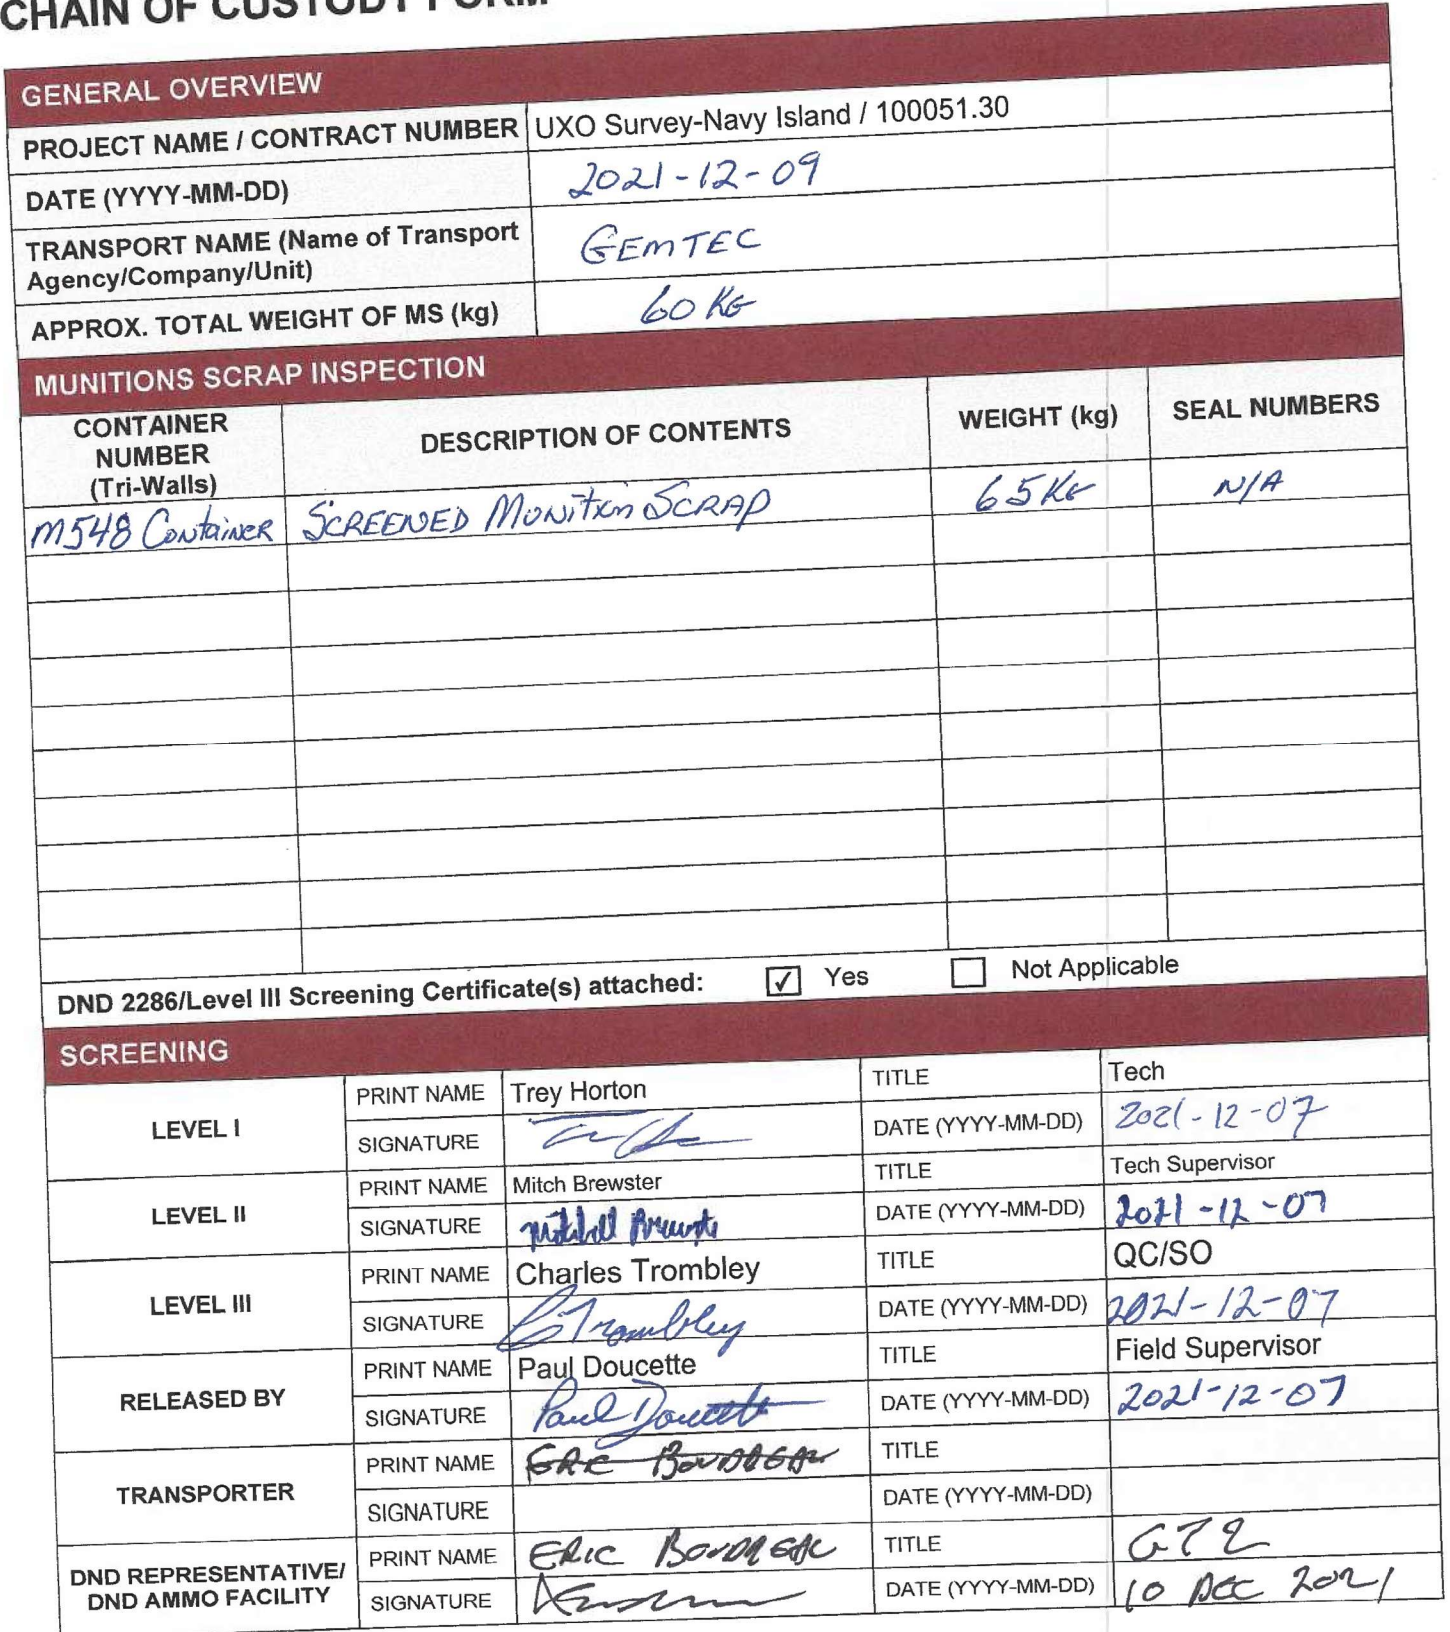 CHAIN OF CUSTODY FORM
GENERAL OVERVIEW
PROJECT NAME / CONTRACT NUMBER UXO Survey-Navy Island / 100051.30
DATE (YYYY-MM-DD) 2021-12-09
TRANSPORT NAME (Name of Transport
Agency/Company/Unit) GEMTEC
APPROX. TOTAL WEIGHT OF MS (kg) 60 KG
MUNITIONS SCRAP INSPECTION
CONTAINER
NUMBER
(Tri-Walls) DESCRIPTION OF CONTENTS WEIGHT (kg) SEAL NUMBERS
M548 Container SCREENED Munition SCRAP 65 KG N/A
DND 2286/Level III Screening Certificate(s) attached: ✓ Yes Not Applicable
SCREENING
LEVEL I
PRINT NAME Trey Horton TITLE Tech
SIGNATURE DATE (YYYY-MM-DD) 2021-12-07
LEVEL II
PRINT NAME Mitch Brewster TITLE Tech Supervisor
SIGNATURE Mitchell Brewster DATE (YYYY-MM-DD) 2021-12-07
LEVEL III
PRINT NAME Charles Trombley TITLE QC/SO
SIGNATURE C Trombley DATE (YYYY-MM-DD) 2021-12-07
RELEASED BY
PRINT NAME Paul Doucette TITLE Field Supervisor
SIGNATURE Paul Doucette DATE (YYYY-MM-DD) 2021-12-07
TRANSPORTER
PRINT NAME ERIC BOUDREAU TITLE
SIGNATURE DATE (YYYY-MM-DD)
DND REPRESENTATIVE/
DND AMMO FACILITY
PRINT NAME ERIC BOUDREAU TITLE GT2
SIGNATURE DATE (YYYY-MM-DD) 10 DEC 2021